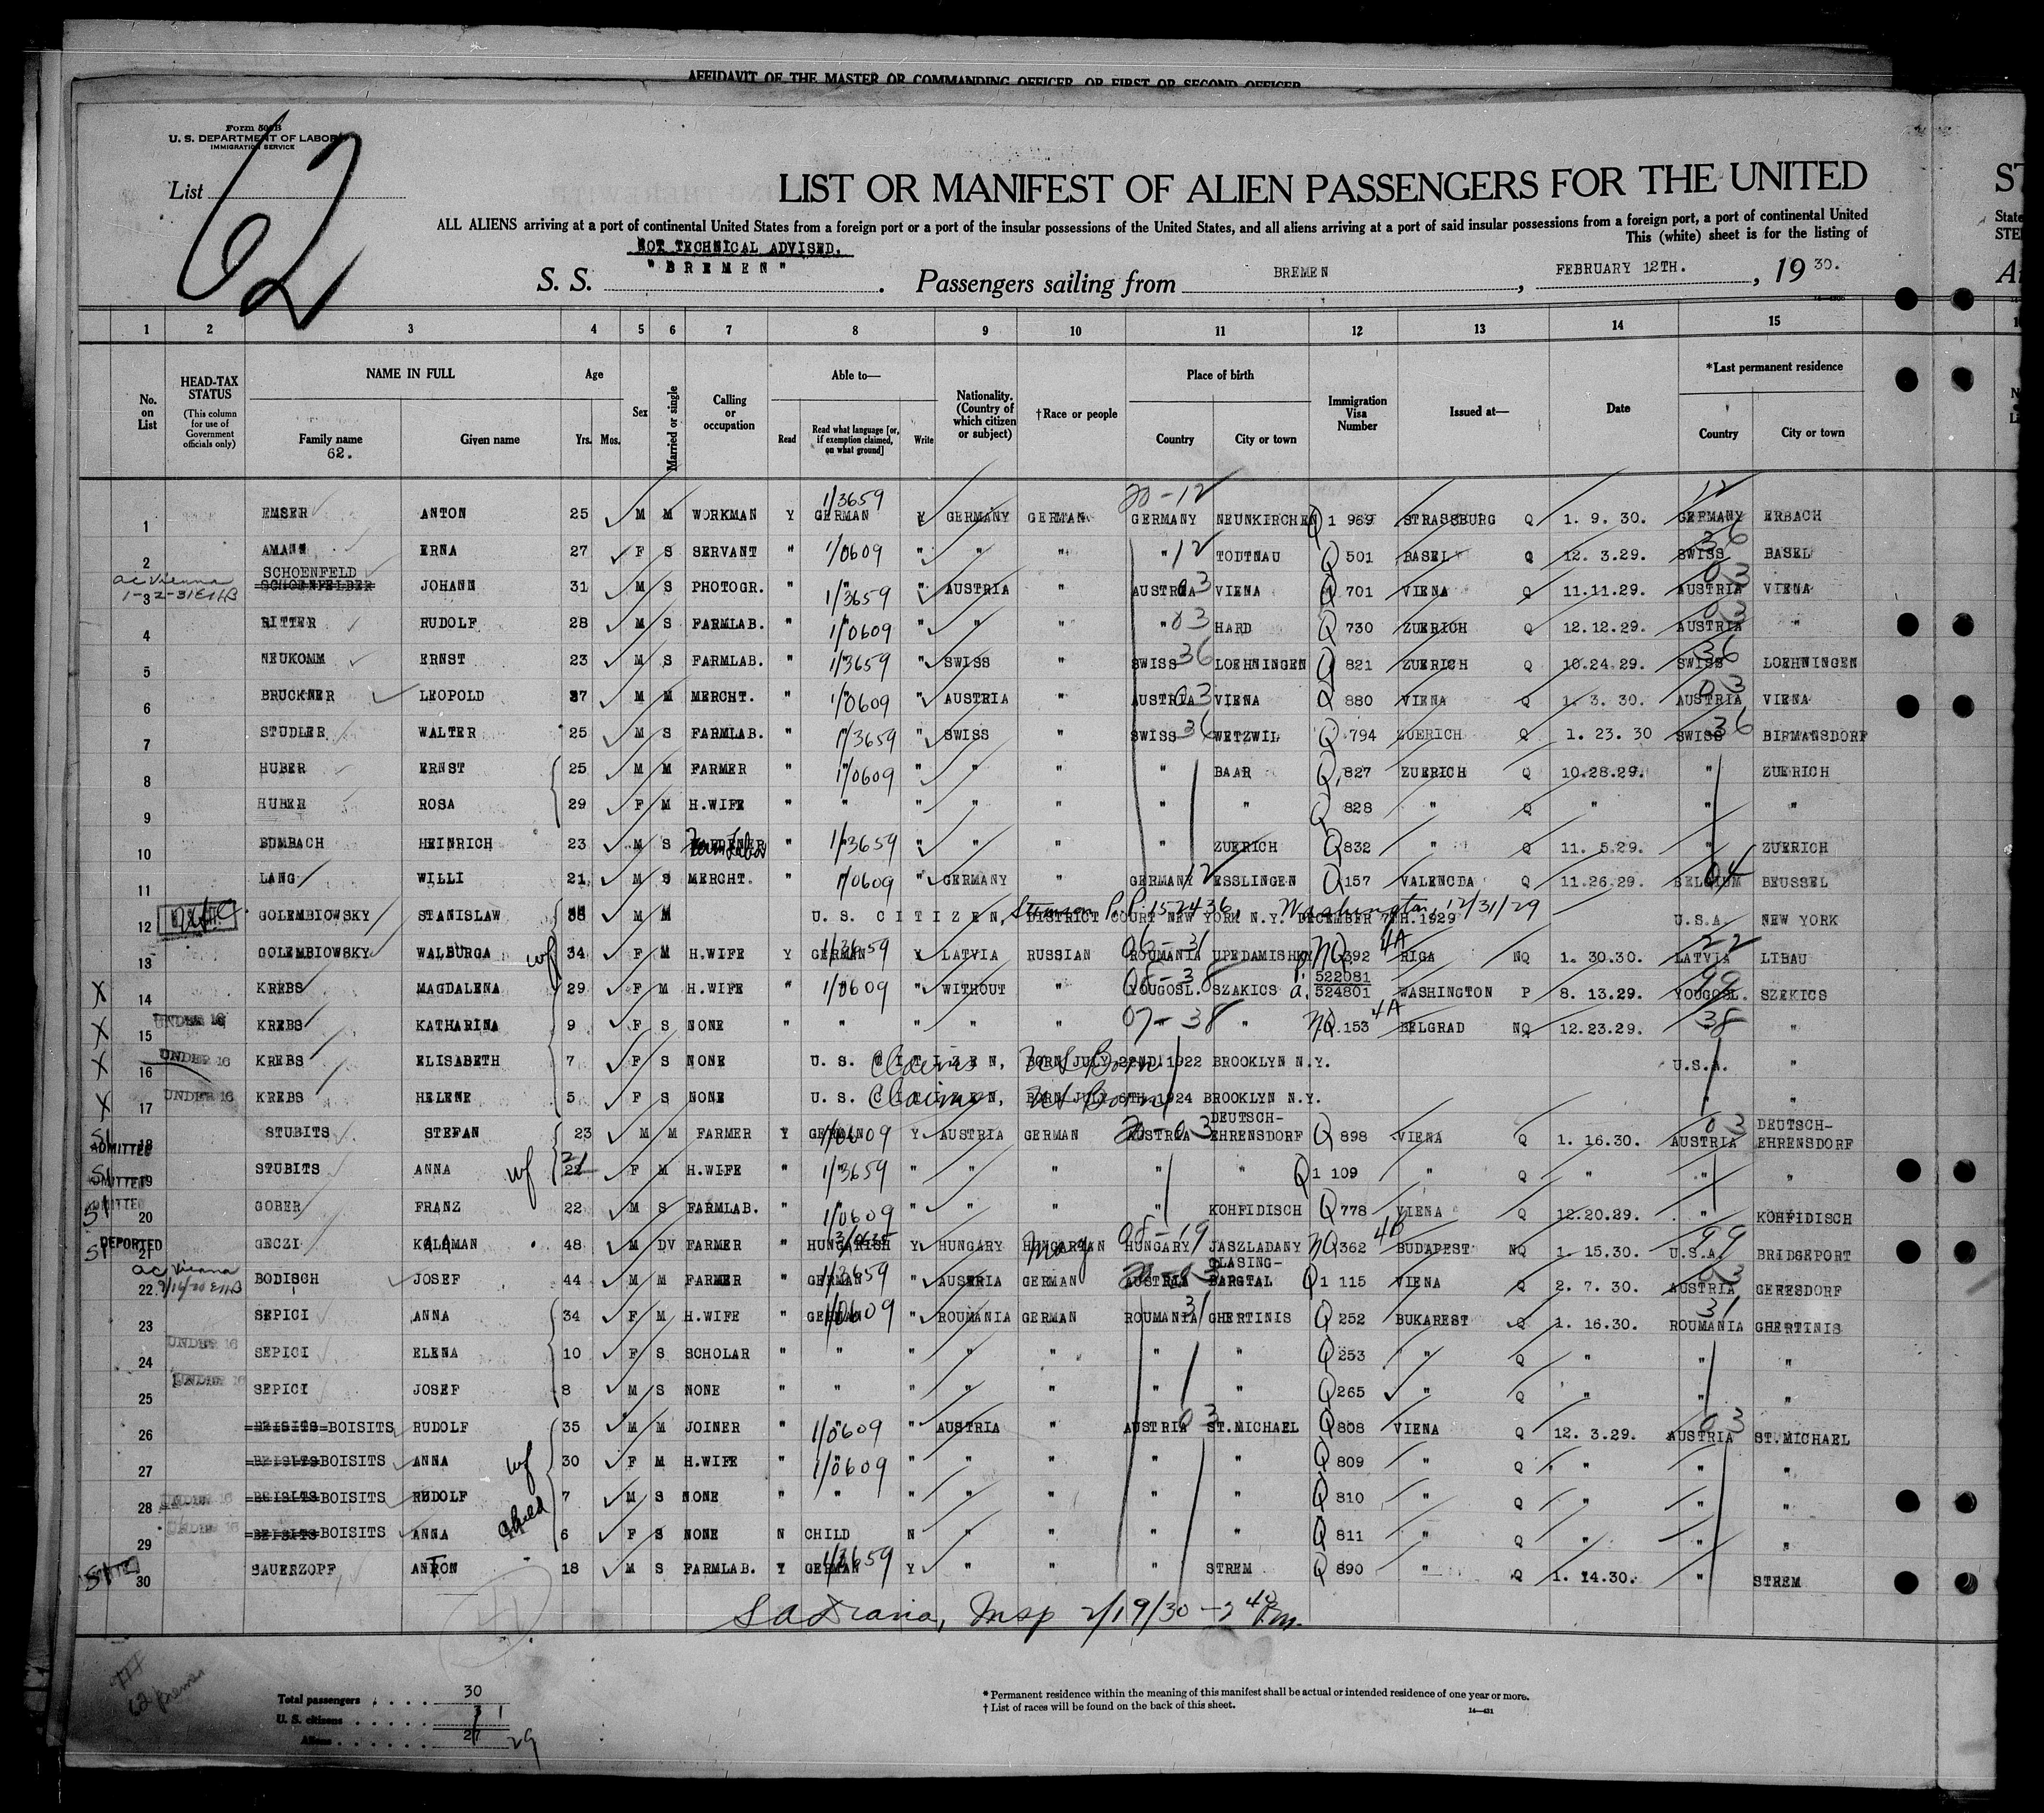 AFFIDAVIT OF THE MASTER OR COMMANDING OFFICER, OR FIRST OR SECOND OFFICER
Form 500B
U. S. DEPARTMENT OF LABOR
IMMIGRATION SERVICE
List 62
LIST OR MANIFEST OF ALIEN PASSENGERS FOR THE UNITED
ALL ALIENS arriving at a port of continental United States from a foreign port or a port of the insular possessions of the United States, and all aliens arriving at a port of said insular possessions from a foreign port, a port of continental United
This (white) sheet is for the listing of
NOT TECHNICAL ADVISED.
S. S. "BREMEN". Passengers sailing from BREMEN, FEBRUARY 12TH., 1930.
1 2 3 4 5 6 7 8 9 10 11 12 13 14 15
No. on List
HEAD-TAX STATUS (This column for use of Government officials only)
NAME IN FULL
Family name 62. Given name
Age Yrs. Mos.
Sex
Married or single
Calling or occupation
Able to— Read Read what language [or, if exemption claimed, on what ground] Write
Nationality. (Country of which citizen or subject)
†Race or people
Place of birth Country City or town
Immigration Visa Number
Issued at—
Date
*Last permanent residence Country City or town
1 EMSER ANTON 25 M M WORKMAN Y GERMAN 1/3659 Y GERMANY GERMAN 20-12 GERMANY NEUNKIRCHEN Q 1 969 STRASSBURG Q 1. 9. 30. 12 GERMANY ERBACH
2 AMANN ERNA 27 F S SERVANT " 1/0609 " " " " 12 TODTNAU Q 501 BASEL Q 12. 3.29. 36 SWISS BASEL
ac Vienna
3 SCHOENFELD SCHOENFELDER JOHANN 31 M S PHOTOGR. " " 1/3659 " AUSTRIA " AUSTRIA 03 VIENA Q 701 VIENA Q 11.11.29. 03 AUSTRIA VIENA
4 RITTER RUDOLF 28 M S FARMLAB. " " 1/0609 " " " " 03 HARD Q 730 ZUERICH Q 12.12.29. 03 AUSTRIA "
5 NEUKOMM ERNST 23 M S FARMLAB. " " 1/3659 " SWISS " SWISS 36 LOEHNINGEN Q 821 ZUERICH Q 10.24.29. 36 SWISS LOEHNINGEN
6 BRUCKNER LEOPOLD 37 M M MERCHT. " " 1/0609 " AUSTRIA " AUSTRIA 03 VIENA Q 880 VIENA Q 1. 3. 30. 03 AUSTRIA VIENA
7 STUDLER WALTER 25 M S FARMLAB. " " 1/3659 " SWISS " SWISS 36 WETZWIL Q 794 ZUERICH Q 1. 23. 30 36 SWISS BIRMANSDORF
8 HUBER ERNST 25 M M FARMER " " 1/0609 " " " " BAAR Q 827 ZUERICH Q 10.28.29. " ZUERICH
9 HUBER ROSA 29 F M H.WIFE " " " " " " " Q 828 " Q " " "
10 BOMBACH HEINRICH 23 M S GARDENER Farm Labor " " 1/3659 " " " " ZUERICH Q 832 " Q 11. 5.29. " ZUERICH
11 LANG WILLI 21 M S MERCHT. " " 1/0609 " GERMANY " GERMANY 12 ESSLINGEN Q 157 VALENCDA Q 11.26.29. 04 BELGIUM BEUSSEL
12 GOLEMBIOWSKY STANISLAW 38 M M U. S. CITIZEN, DISTRICT COURT NEW YORK N.Y. DECEMBER 7TH.1929 P.P. 152436, Washington, 12/31/29 U.S.A. NEW YORK
13 GOLEMBIOWSKY WALBURGA wf 34 F M H.WIFE Y GERMAN 1/3659 Y LATVIA RUSSIAN 06-31 ROUMANIA UPEDAMISHKY NQ 392 4A RIGA NQ 1. 30.30. 22 LATVIA LIBAU
X 14 KREBS MAGDALENA 29 F M H.WIFE " " 1/0609 " WITHOUT " 08-38 YOUGOSL. SZAKICS 522081 524801 WASHINGTON P 8. 13.29. 99 YOUGOSL. SZEKICS
X 15 UNDER 16 KREBS KATHARINA 9 F S NONE " " " " " 07-38 " " NQ.153 4A BELGRAD NQ 12.23.29. 38 " "
X 16 UNDER 16 KREBS ELISABETH 7 F S NONE U. S. CITIZEN, BORN JULY 22ND.1922 BROOKLYN N.Y. Claims US Born U.S.A. "
X 17 UNDER 16 KREBS HELENE 5 F S NONE U. S. CITIZEN, BORN JULY 6TH.1924 BROOKLYN N.Y. Claims US Born " "
SI ADMITTED 18 STUBITS STEFAN 23 M M FARMER Y GERMAN 1/0609 Y AUSTRIA GERMAN 20-03 AUSTRIA DEUTSCH-EHRENSDORF Q 898 VIENA Q 1. 16.30. 03 AUSTRIA DEUTSCH-EHRENSDORF
SI ADMITTED 19 STUBITS ANNA wf 22 21 F M H.WIFE " " 1/3659 " " " " " Q1 109 " Q " " "
SI ADMITTED 20 GOBER FRANZ 22 M S FARMLAB. " " 1/0609 " " " " KOHFIDISCH Q 778 VIENA Q 12.20.29. " KOHFIDISCH
SI DEPORTED 21 GECZI KALAMAN 48 M DV FARMER " HUNGARISH Y HUNGARY HUNGARIAN Mag 08-19 HUNGARY JASZLADANY NQ 362 4B BUDAPEST NQ 1. 15.30. 99 U.S.A. BRIDGEPORT
ac Vienna
22 BODISCH JOSEF 44 M M FARMER " GERMAN 1/3659 " AUSTRIA GERMAN 20-03 AUSTRIA GLASING-BARGTAL Q1 115 VIENA Q 2. 7. 30. 03 AUSTRIA GERESDORF
23 SEPICI ANNA 34 F M H.WIFE " GERMAN 1/0609 " ROUMANIA GERMAN ROUMANIA 31 GHERTINIS Q 252 BUKAREST Q 1. 16.30. 31 ROUMANIA GHERTINIS
24 UNDER 16 SEPICI ELENA 10 F S SCHOLAR " " " " " " " Q 253 " " Q " " "
25 UNDER 16 SEPICI JOSEF 8 M S NONE " " " " " " " Q 265 " Q " " "
26 BEISITS BOISITS RUDOLF 35 M M JOINER " " 1/0609 " AUSTRIA " AUSTRIA 03 ST.MICHAEL Q 808 VIENA Q 12. 3.29. 03 AUSTRIA ST.MICHAEL
27 BEISITS BOISITS ANNA wf 30 F M H.WIFE " 1/0609 " " " " " Q 809 " Q " " "
28 UNDER 16 BEISITS BOISITS RUDOLF 7 M S NONE " " " " " " " Q 810 " Q " " "
29 UNDER 16 BEISITS BOISITS ANNA child 6 F S NONE N CHILD N " " " " Q 811 " Q " " "
SI 30 SAUERZOPF ANTON 18 M S FARMLAB. Y GERMAN 1/3659 Y " " " STREM Q 890 " Q 1. 14.30. " STREM
Insp 2/19/30 - 2 40 P.m.
Total passengers . . . . 30
U. S. citizens . . . . . 3 1
Aliens . . . . . . 27 29
62 Bremen
*Permanent residence within the meaning of this manifest shall be actual or intended residence of one year or more.
†List of races will be found on the back of this sheet.
14—431